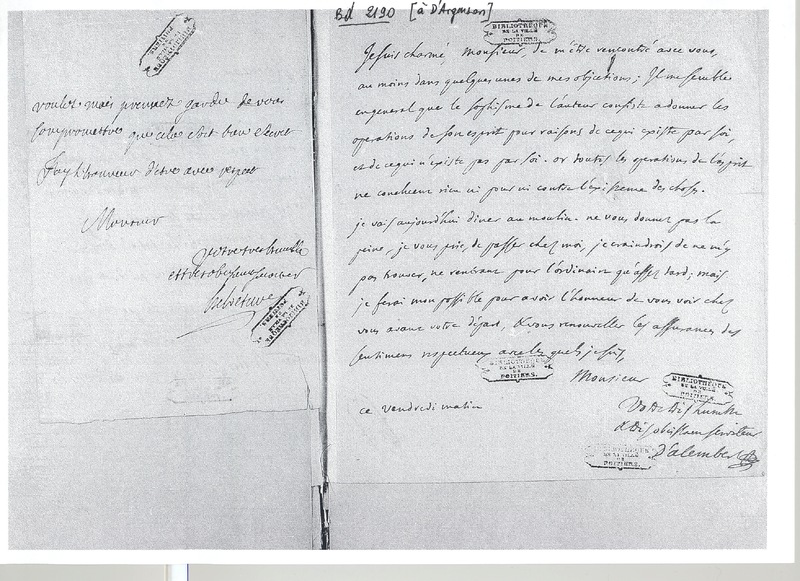 Bd 2190 [à D'Argenson]
BIBLIOTHÈQUE
DE LA VILLE
DE
POITIERS.
voulez mais prennez garde de vous
compromettre que cela soit bien secret
J'ay l'honneur d'estre avec respect
Monsieur
votre tres humble
et tres obeissant serviteur
Je suis charmé, monsieur, de m'être rencontré avec vous,
au moins dans quelques unes de mes objections; Il me semble
en general que le sophisme de l'auteur consiste a donner les
operations de son esprit pour raisons de ce qui existe par soi,
et de ce qui n'existe pas par soi. or toutes les operations de l'esprit
ne concluent rien ni pour ni contre l'existence des choses.
je vais aujourd'hui diner au moulin. ne vous donnez pas la
peine, je vous prie, de passer chez moi, je craindrois de ne m'y
pas trouver, ne rentrant pour l'ordinaire qu'assez tard; mais
je ferai mon possible pour avoir l'honneur de vous voir chez
vous avant votre départ, & vous renouveller les assurances des
sentimens respectueux avec lesquels je suis,
BIBLIOTHÈQUE
DE LA VILLE
DE
POITIERS.
Monsieur
BIBLIOTHÈQUE
DE LA VILLE
DE
POITIERS.
ce vendredi matin
Votre tres humble
& tres obeissant serviteur
D'alembert
BIBLIOTHÈQUE
DE LA VILLE
DE
POITIERS.